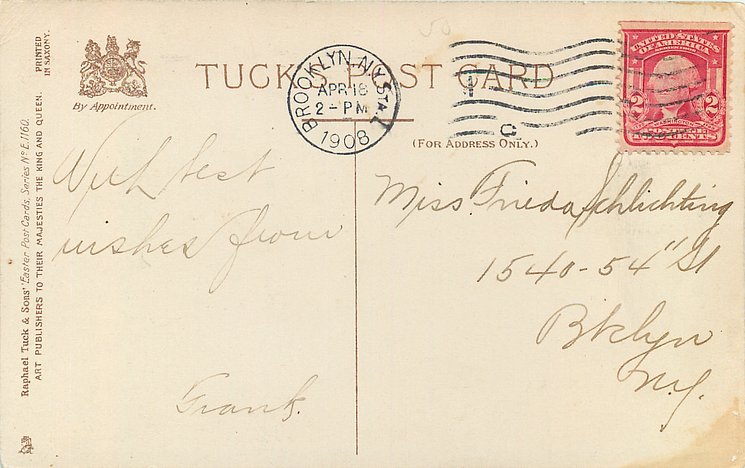 Raphael Tuck & Sons' "Easter" Post Cards, Series Nº E. 1160.
ART PUBLISHERS TO THEIR MAJESTIES THE KING AND QUEEN.
PRINTED
IN SAXONY.
By Appointment.
TUCK'S POST CARD
(FOR ADDRESS ONLY.)
BROOKLYN, N.Y. STA. L
APR 18
2 - PM
1908
C
UNITED STATES
OF AMERICA
2 2
TWO CENTS
With best
wishes from
Frank.
Miss. Frieda Schlichting
1540-54" St
Bklyn
N.Y.